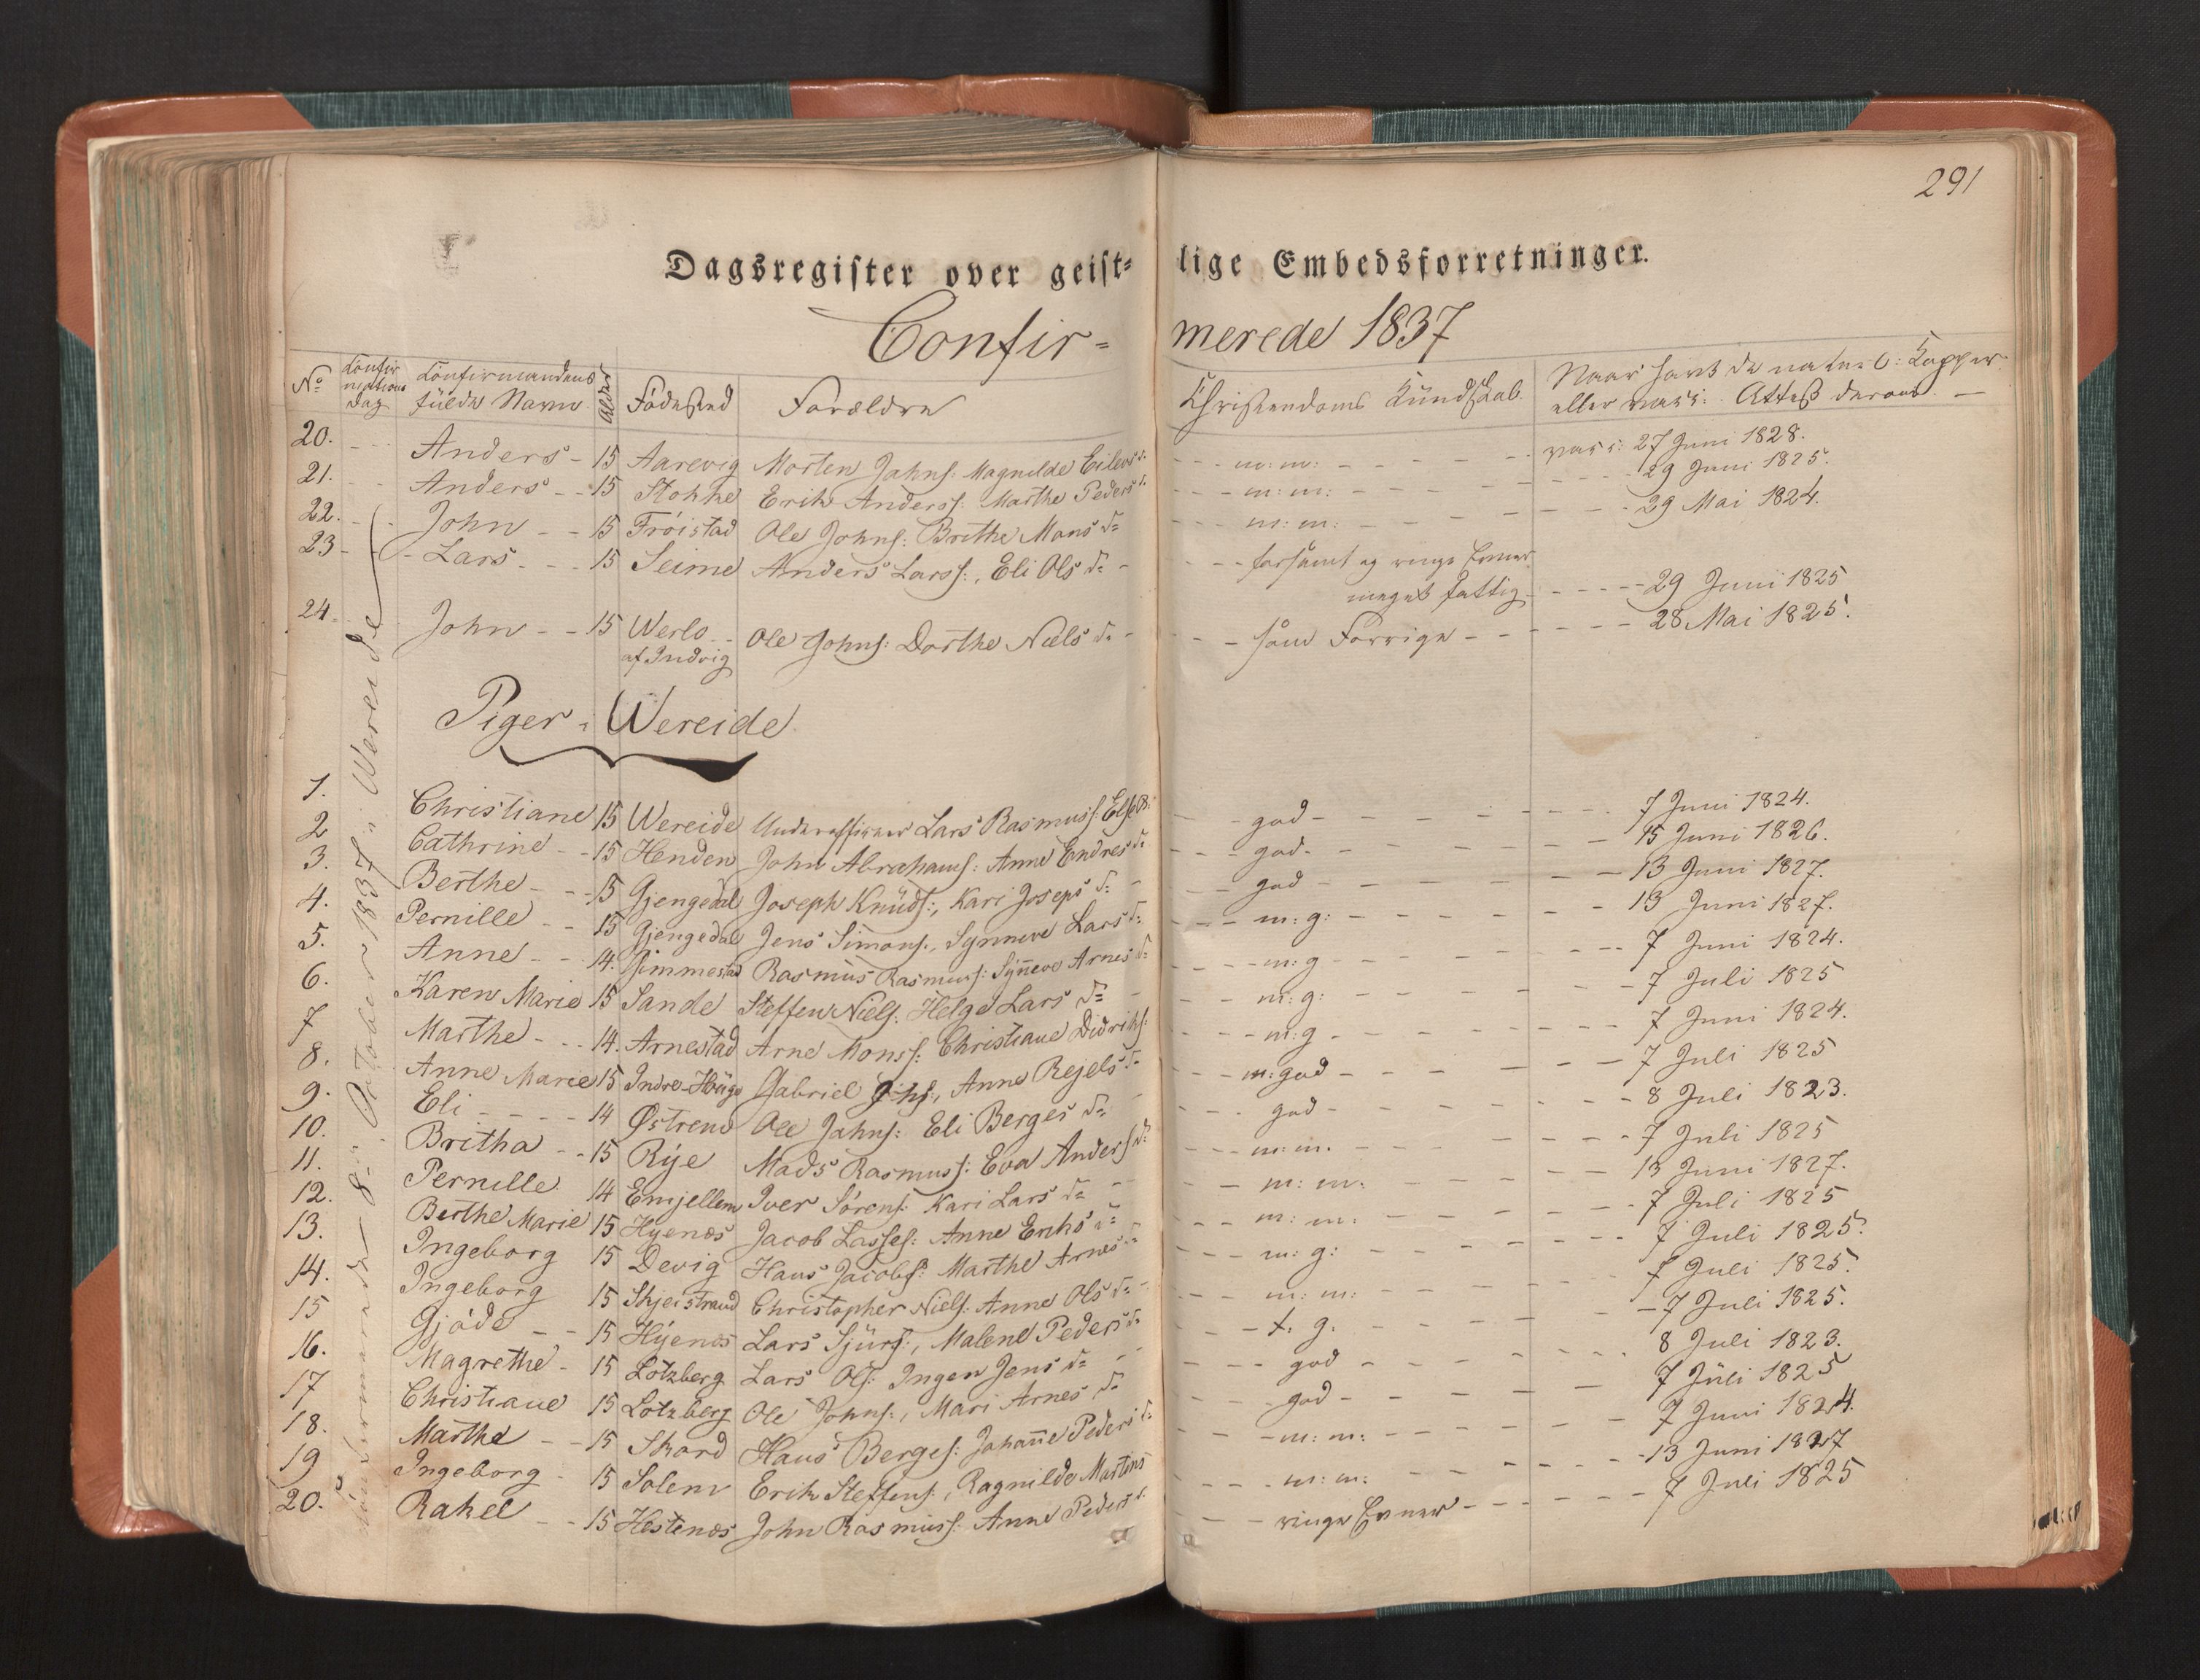 291
Dagsregister over geist= lige Embedsforretninger.
Confir= merede 1837
No Confirmations Dag Confirmandens fulde Navn Alder Fødested Forældre Christendoms Kundskab Naar havt de naturl: Kopper
eller vacc: Attest derom. —
20. Anders 15 Aarevig Morten Johns: Magnilde Eilevs d: m: m: vacc: 27 Juni 1828.
21. Anders 15 Stokke Erik Anderss: Marthe Peders d: m: m: 29 Juni 1825.
22. John 15 Frøistad Ole Johns: Brithe Mons d= m: m: 29 Mai 1824.
23 Lars 15 Seime Anders Larss:, Eli Ols d= forsømt og ringe Evner
meget fattig 29 Juni 1825
24. John 15 Werlo Ole Johns: Dorthe Niels d= som Forrige 28 Mai 1825.
af Indvig
Piger i Wereide
Confirmerede 8de October 1837 i Wereide
1. Christiane 15 Wereide Underofficeer Lars Rasmuss: Else god 7 Juni 1824.
2 Cathrine 15 Henden John Abrahams: Anne Endres d= god 15 Juni 1826.
3. Berthe 15 Gjengedal Joseph Knuds:, Kari Joseps d= god 13 Juni 1827.
4. Pernille 15 Gjengedal Jens Simons:, Synneve Lars d= m: g: 13 Juni 1827.
5. Anne 14. Gimmestad Rasmus Rasmuss: Syneve Arnes d= m: g 7 Juni 1824.
6. Karen Marie 15 Sande Steffen Niels: Helge Lars d= m: g: 7 Juli 1825
7 Marthe 14. Arnestad Arne Monss: Christiane Didriks: m: g 7 Juni 1824.
8. Anne Marie 15 Indre-Høige Gabriel Anne Rejels d= m: god 7 Juli 1825
9. Eli 14 Østrem Ole Johns: Eli Berges d= god 8 Juli 1823.
10. Britha 15 Rye Mads Rasmuss: Eva Anders d= m: m. 7 Juli 1825
11. Pernille 14 Emjellem Iver Sørens: Kari Lars d= m: m: 13 Juni 1827.
12. Berthe Marie 15 Hyenæs Jacob Lasses: Anne Eriks d= m: m: 7 Juli 1825
13. Ingeborg 15 Devig Hans Jacobs: Marthe Arnes d= m: g: 7 Juli 1825.
14. Ingeborg 15 Skjeistrand Christopher Niels: Anne Ols d= m: m: 7 Juli 1825.
15 Gjøde 15 Hyenæs Lars Sjurs:, Malene Peders d= t. g. 7 Juli 1825.
16. Magrethe 15 Lotzberg Lars Ols: Ingen Jens d= god 8 Juli 1823.
17 Christiane 15 Lotzberg Ole Johns:, Mari Arnes d= god 7 Juli 1825
18. Marthe 15 Skord Hans Berges: Johane Peders d= m: m: 7 Juni 1824.
19 Ingeborg 15 Solem Erik Steffens:, Ragnilde Martins m: m: 13 Juni 1827
20. Rakel 15 Hestenæs John Rasmuss: Anne Peders d. ringe Evner 7 Juli 1825